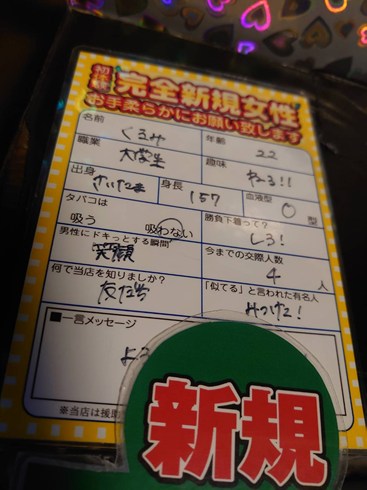 初体験
完全新規女性
お手柔らかにお願い致します
名前 くるみ 年齢 22
職業 大学生 趣味 ねーる!!
出身 さいたま 身長 157 血液型 O 型
タバコは 吸う 吸わない 勝負下着って? しろ!
男性にドキっとする瞬間 笑顔 今までの交際人数 4 人
何で当店を知りましたか? 友だち 「似てる」と言われた有名人
■一言メッセージ
よろ
※当店は援助
新規